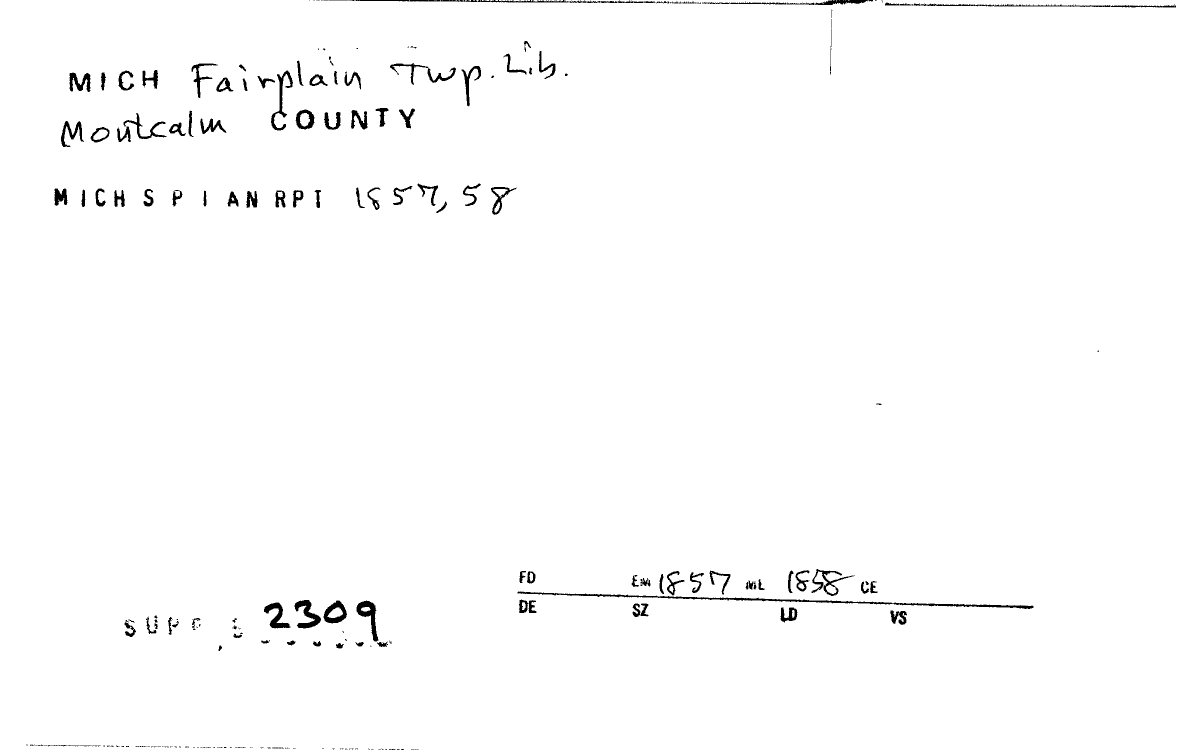 MICH Fairplain Twp. Lib.
Montcalm COUNTY
MICH S P I AN RPT 1857, 58
FD EM 1857 ML 1858 CE
DE SZ LD VS
2309